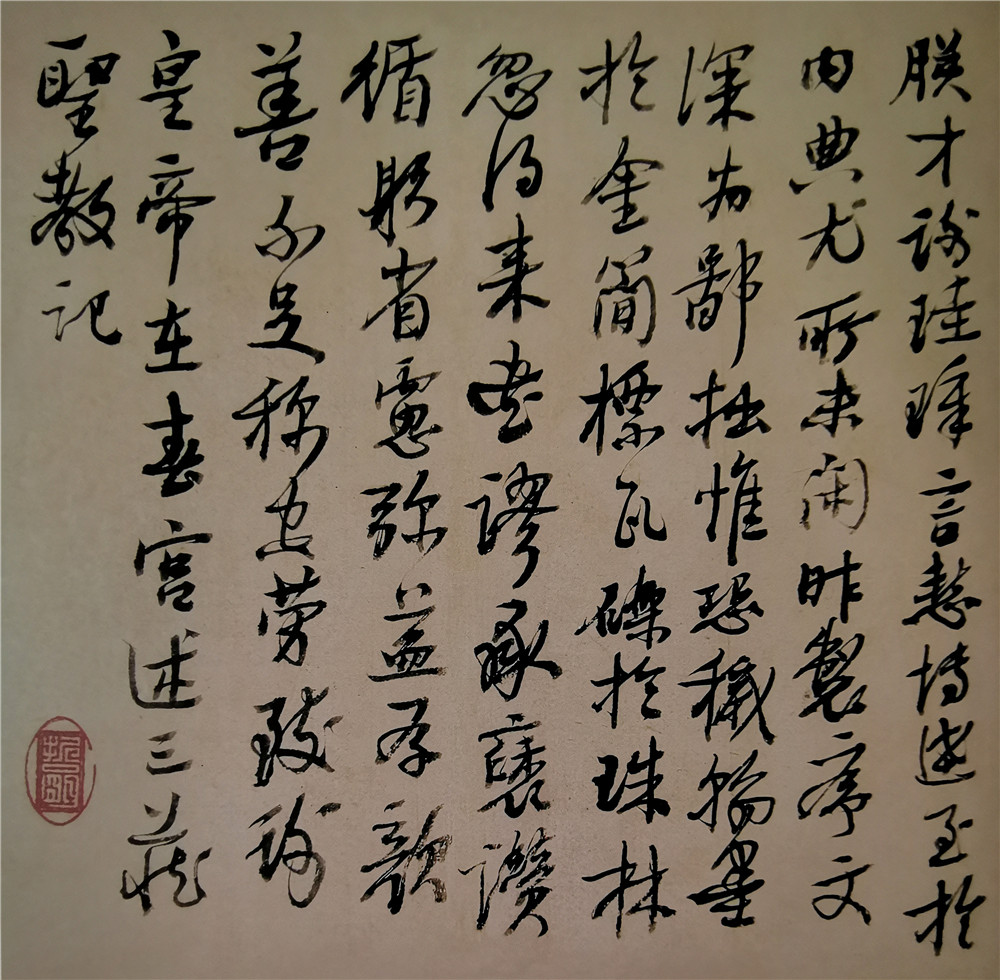 朕才謝珪璋言慙博達至於
内典尤所未閑昨製序文
深為鄙拙惟恐穢翰墨
於金簡標瓦礫於珠林
忽得来書謬承褒讚
循躬省慮弥益厚顔
善不足稱空勞致謝
皇帝在春宮述三藏
聖教記